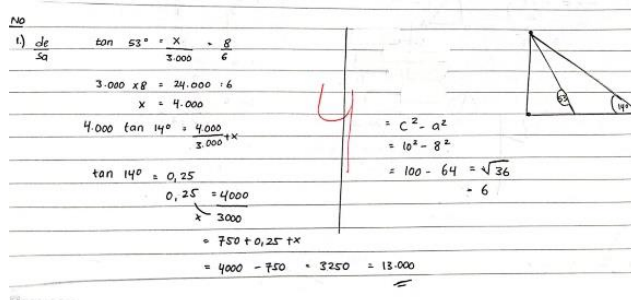 NO
1.) de/sa tan 53° = x/3.000 = 8/6
3.000 x 8 = 24.000 : 6
x = 4.000
4.000 tan 14° = 4.000/3.000 + x
tan 14° = 0,25
0,25 = 4000/3000
x
= 750 + 0,25 + x
= 4000 - 750 = 3250 = 13.000
4
= c² - a²
= 10² - 8²
= 100 - 64 = √36
= 6
53°
14°